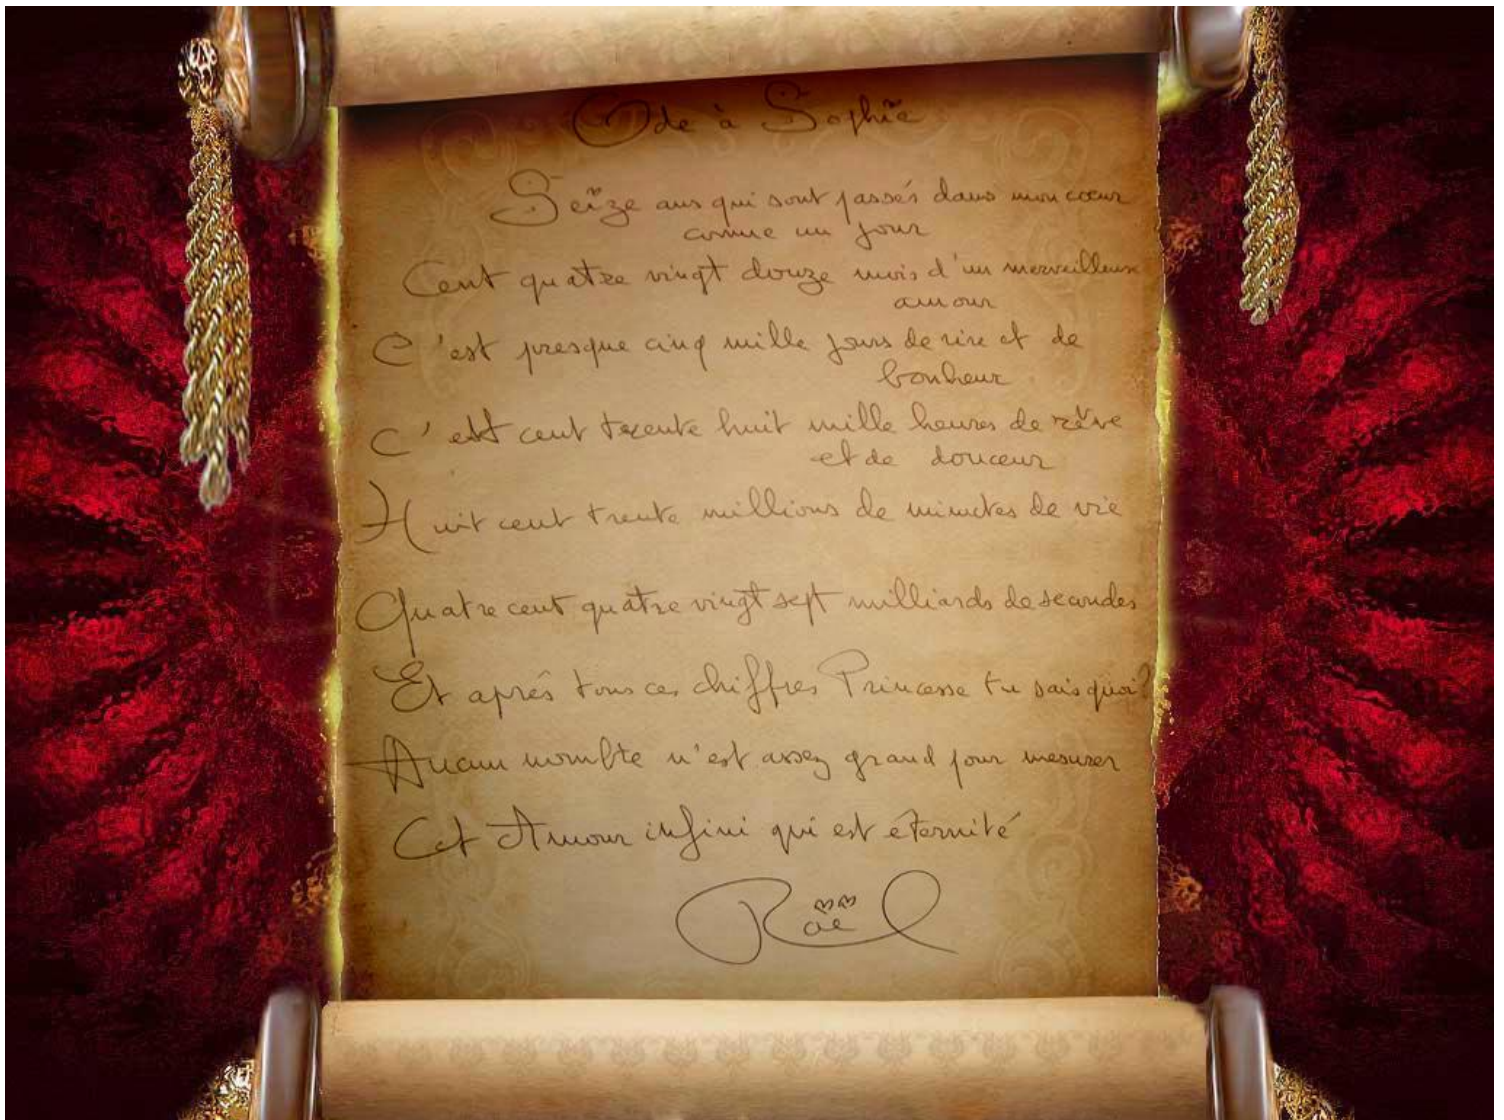 Ode à Sophie
Seize ans qui sont passés dans mon cœur
comme un jour
Cent quatre vingt douze mois d'un merveilleux
amour
C'est presque cinq mille jours de rire et de
bonheur
C'est cent trente huit mille heures de rêve
et de douceur
Huit cent trente millions de minutes de vie
Quatre cent quatre vingt sept milliards de secondes
Et après tous ces chiffres Princesse tu sais quoi?
Aucun nombre n'est assez grand pour mesurer
Cet Amour infini qui est éternité
Raël